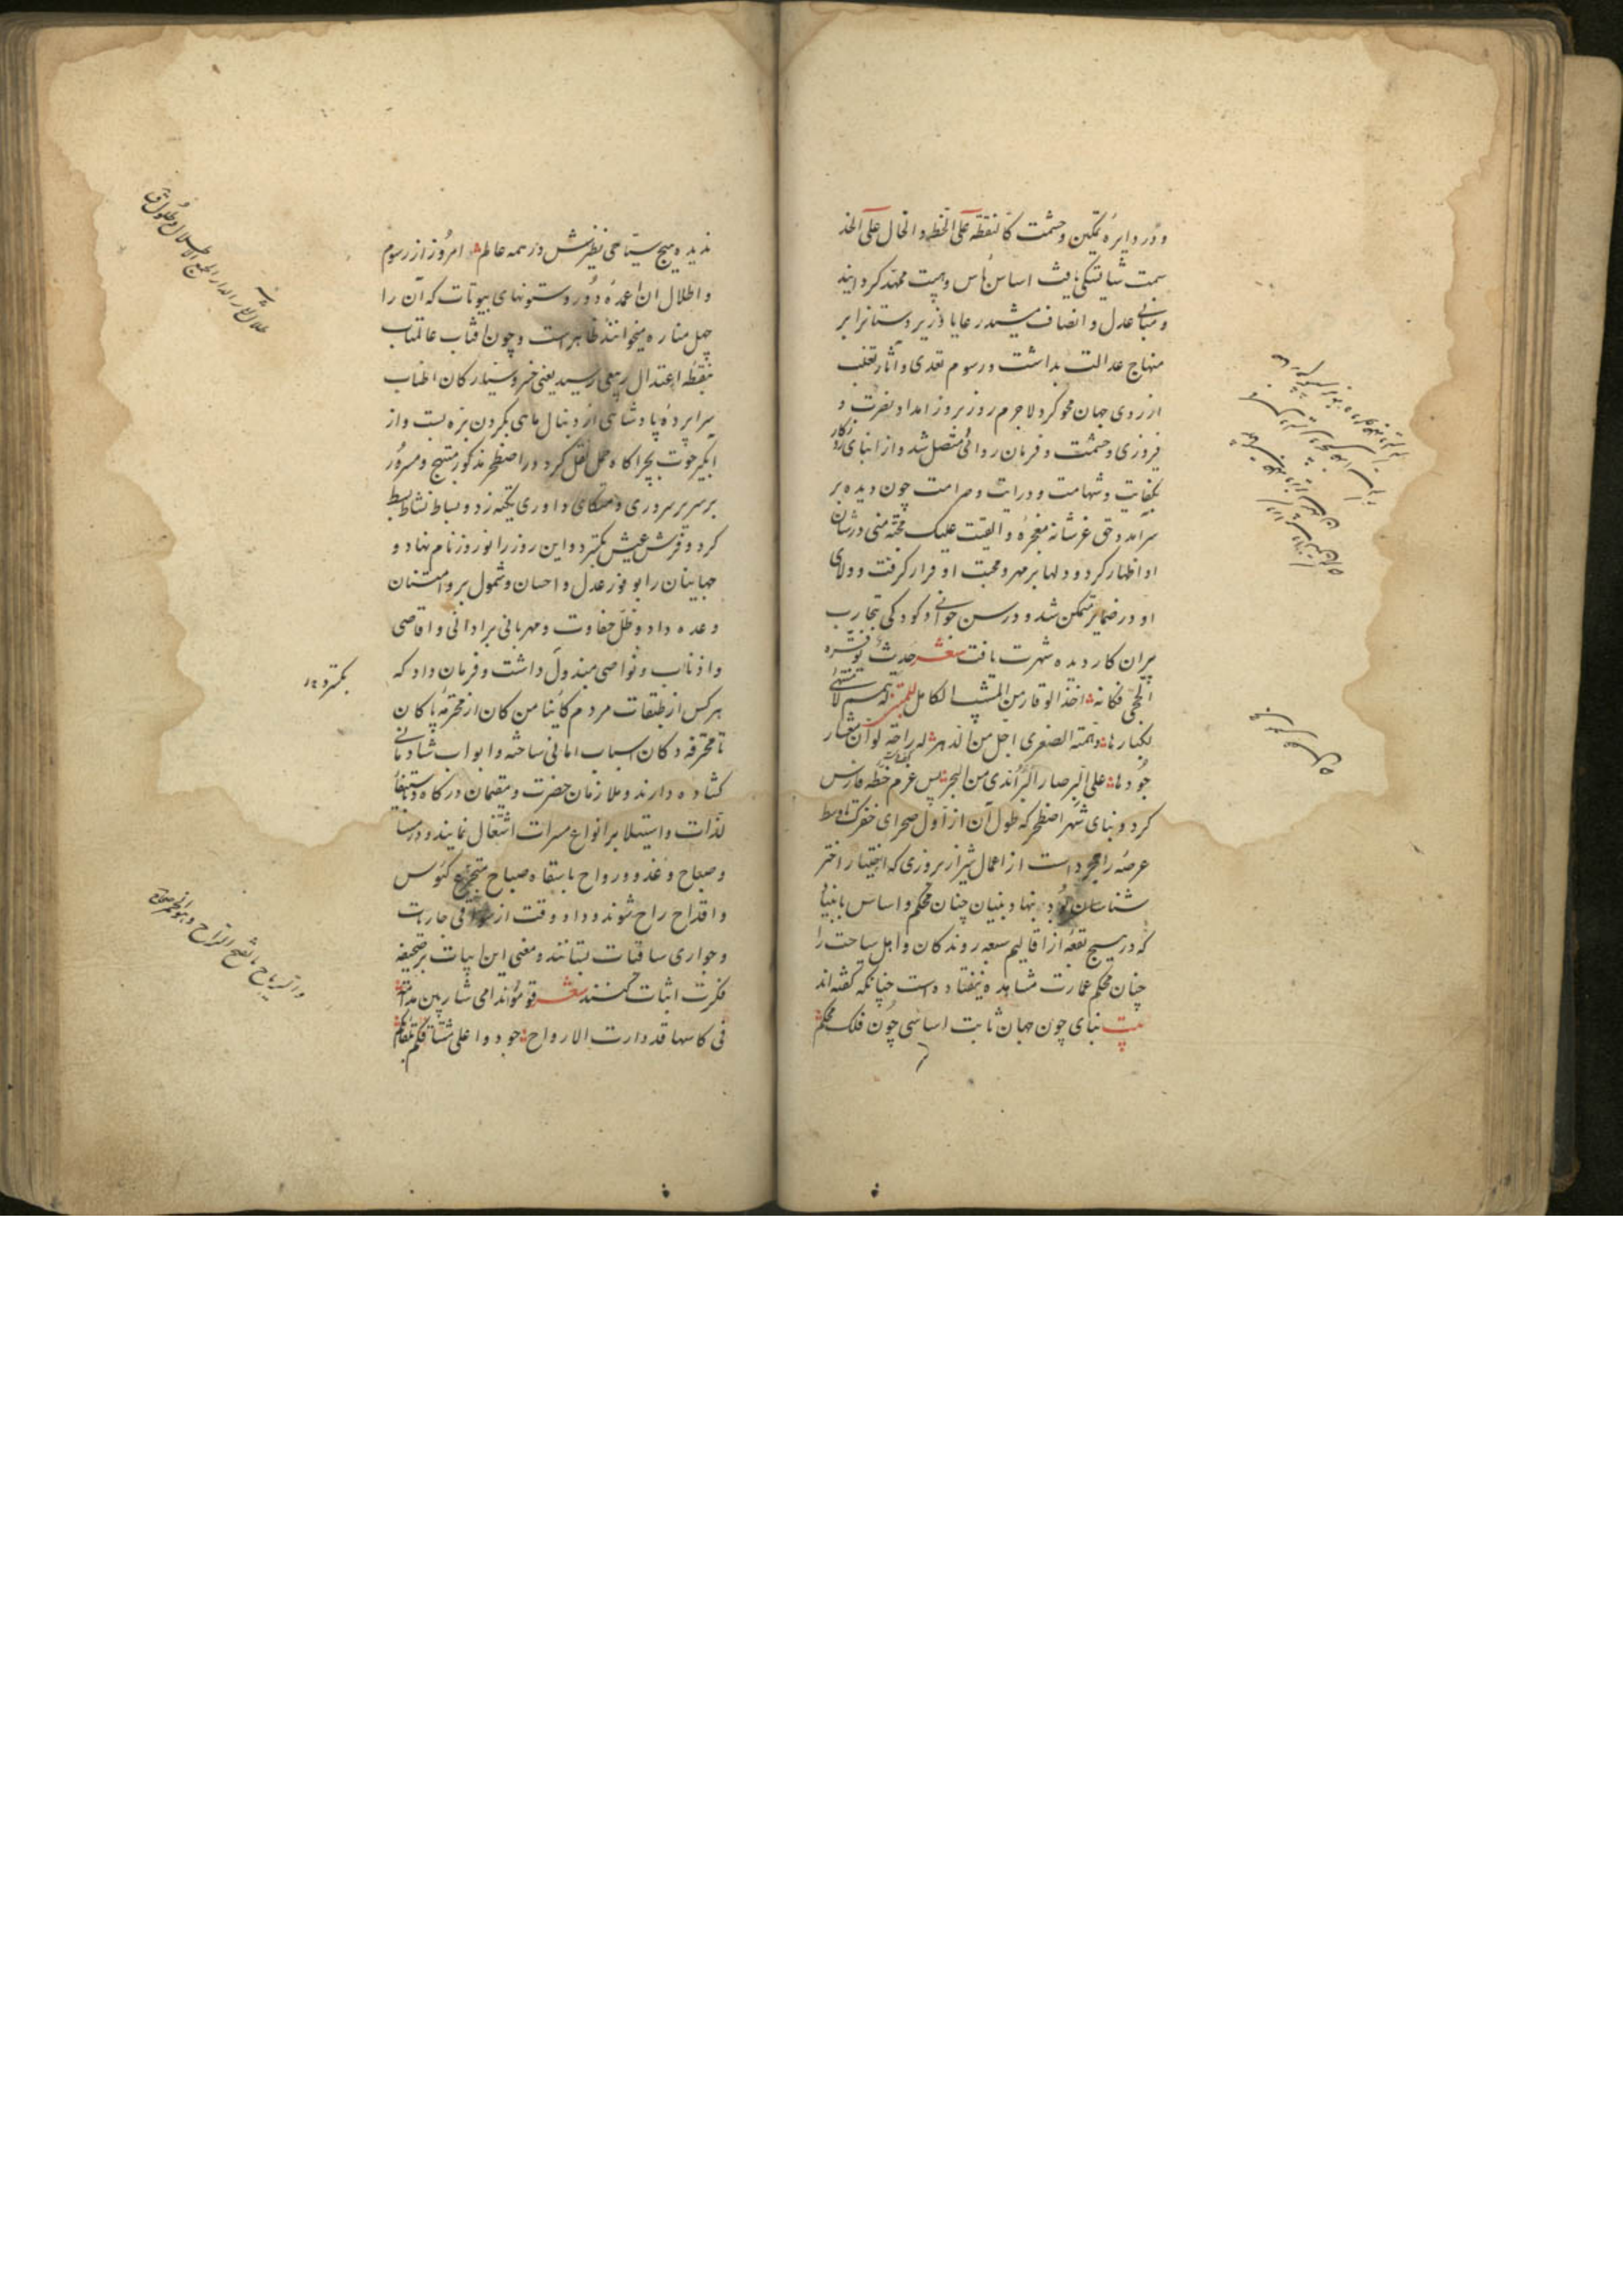 ودر دایره تمکین و حشمت کالنقطة علی الخط و الخال علی الخد
سمت شایستگی یافت اساس باس و هیبت ممهد کردانید
و مبانی عدل و انصاف مشید رعایا و زیردستانرا بر
منهاج عدالت بداشت و رسوم تعدی و آثار تغلب
از روی جهان محو کرد لاجرم روز بروز امداد نصرت و
فیروزی و حشمت و فرمان روائی متصل شد و از ابنای روزکار
بکفایت و شهامت و درایت و صرامت چون دیده بر
سرآمد و حق عز شانه معجزه و القیت علیک محبة منی در شان
او اظهار کرد و دلها بر مهر و محبت او قرار کرفت و ولای
او در ضمایر متمکن شد و در سن جوانی و کودکی بتجارب
پیران کار دیده شهرت یافت شعر حدث یوقره
الحجی فکانه اخذ الوقار من المشیب الکامل له همم لا منتهی
لکبارها وهمته الصغری اجل من الدهر له راحة لو ان معشار
جودها علی البر صار البر اندی من البحر پس عزم خطه فارس
کرد و بنای شهر اصطخر که طول آن از اول صحرای خفرک تا وسط
عرصه رامجرد است از اعمال شیراز بروزی که اختیار اختر
شناسان بود بنهاد بنیان چنان محکم و اساس بابنیانی
که در هیچ بقعه از اقالیم سبعه روندکان و اهل سیاحت را
چنان محکم عمارت مشاهده نیفتاده است چنانکه کفته اند
بیت بنای چون جهان ثابت اساسی چون فلک محکم
ندیده هیچ سیاحی نظیرش در همه عالم امروز از رسوم
و اطلال آن اعمده دور و ستونهای بیوتات که آن را
چهل مناره میخوانند ظاهر است و چون آفتاب عالمتاب
بنقطه اعتدال ربیعی رسید یعنی خسرو سیارکان اطناب
سراپرده پادشاهی از دنبال ماهی بکردن بره بست و از
آبکیر حوت بچراکاه حمل نقل کرد در اصطخر مذکور مبتهج و مسرور
بر سریر سروری و متکای داوری تکیه زد و بساط نشاط بسط
کرد و فرش عیش بکسترد و این روز را نوروز نام نهاد و
جهانیان را بوفور عدل و احسان و شمول بر و امتنان
وعده داد و ظل حفاوت و مهربانی بر ادانی و اقاصی
و اذناب و نواصی مبذول داشت و فرمان داد که
هر کس از طبقات مردم کائنا من کان از محترفه
تا محترفه دکان اسباب امانی ساخته و ابواب شادمانی
کشاده دارند و ملازمان حضرت و مقیمان درکاه باستیفاء
لذات و استیلا بر انواع مسرات اشتغال نمایند و در مسا
و صباح و غدو و رواح باسقاه صباح متجرع کئوس
و اقداح راح شوند و داد وقت از جاریات
و جواری ساقیات بستانند و معنی این ابیات بر صحیفه
فکرت اثبات کنند شعر قوموا ندامی شاربین مدامة
فی کاسها قد دارت الارواح جودوا علی مشتاقکم بلقائکم
بکسترد